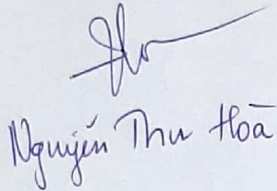 Nguyễn Thu Hoà